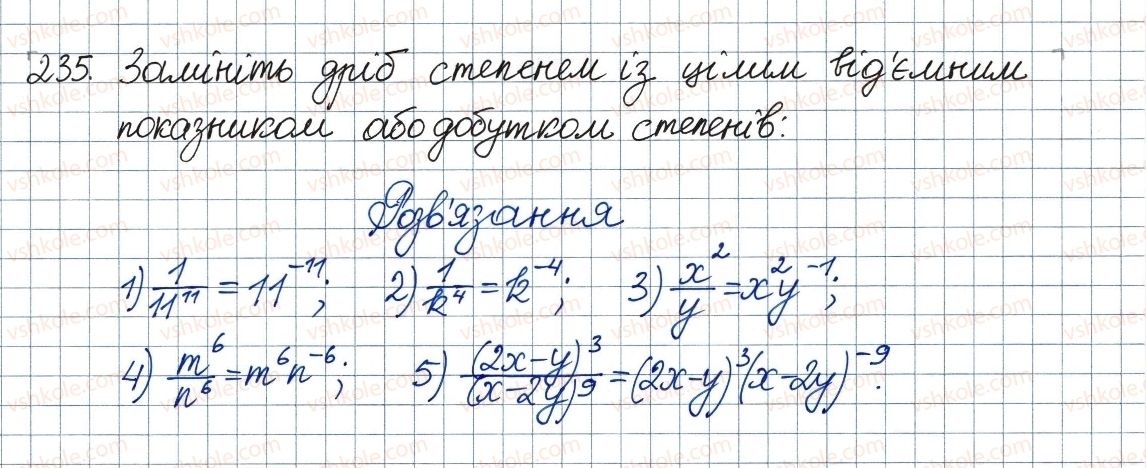 235. Замініть дріб степенем із цілим від'ємним
показником або добутком степенів:
Розв'язання
1) 1/11^11 = 11^-11; 2) 1/k^4 = k^-4; 3) x^2/y = x^2y^-1;
4) m^6/n^6 = m^6n^-6; 5) (2x-y)^3/(x-2y)^9 = (2x-y)^3(x-2y)^-9.